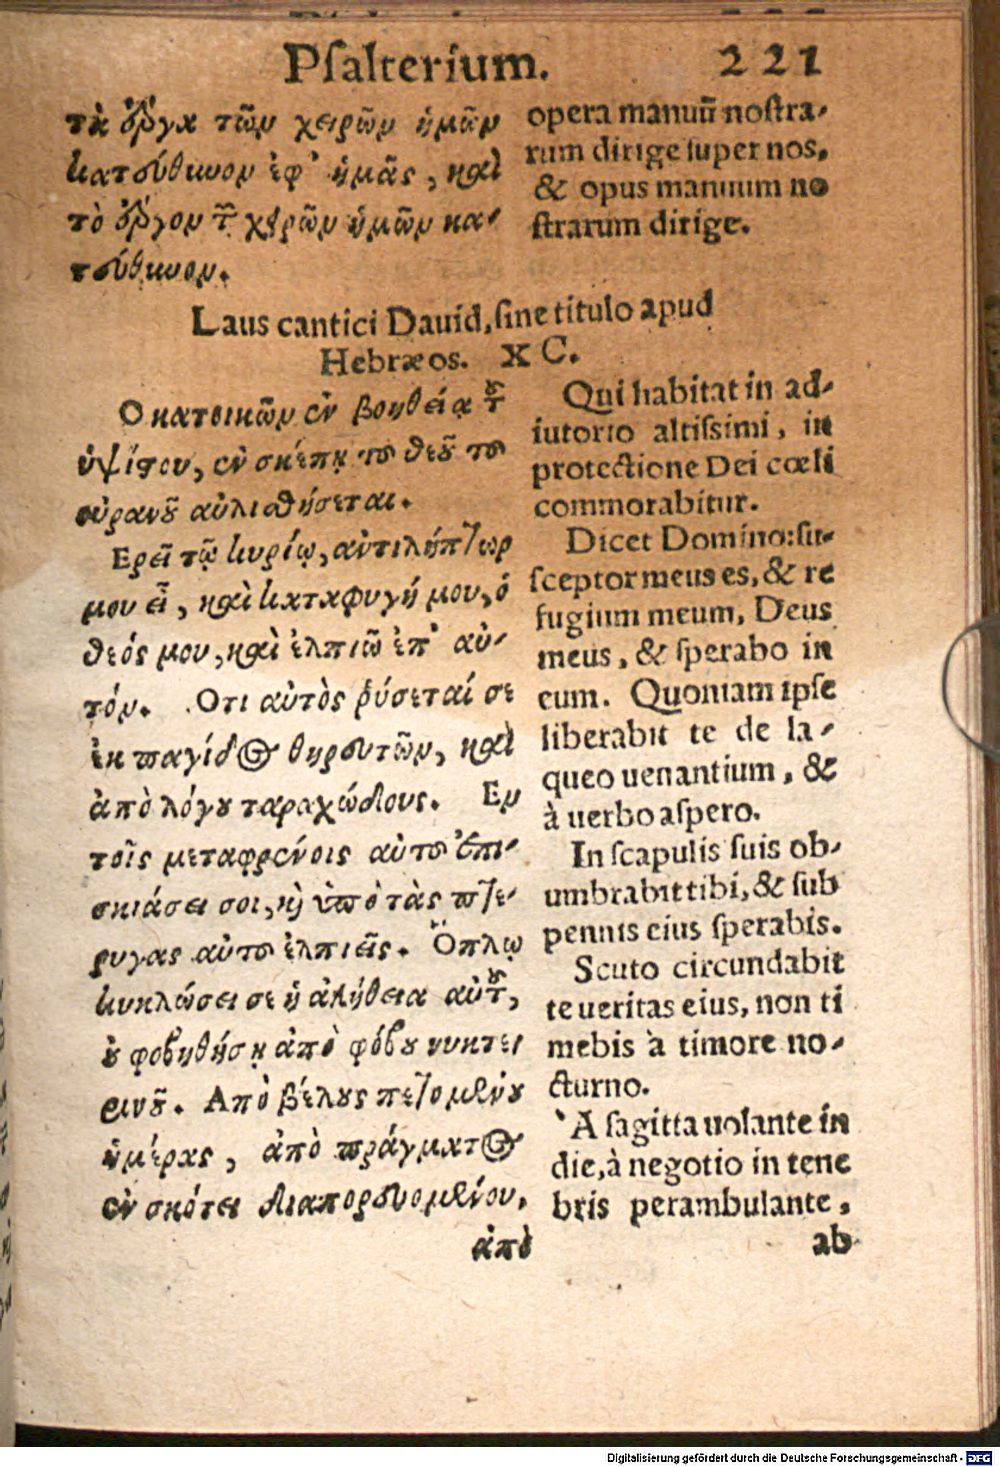 Psalterium. 221
τὰ ἔργα τῶν χειρῶν ἡμῶν
κατεύθυνον ἐφ' ἡμᾶς, καὶ
τὸ ἔργον τ͂ χειρῶν ἡμῶν κα-
τεύθυνον.
opera manuū nostra-
rum dirige super nos,
& opus manuum no
strarum dirige.
Laus cantici Dauid, sine titulo apud
Hebræos. XC.
Ο κατοικῶν ἐν βοηθείᾳ τοῦ
ὑψίστου, ἐν σκέπῃ τοῦ θεοῦ τοῦ
οὐρανοῦ αὐλισθήσεται.
Ερεῖ τῷ κυρίῳ, αντιλήπτωρ
μου εἶ, καὶ καταφυγή μου, ὁ
θεός μου, καὶ ἐλπιῶ ἐπ' αὐ-
τόν. Οτι αὐτὸς ῥύσεταί σε
ἐκ παγίδος θηρευτῶν, καὶ
ἀπὸ λόγου ταραχώδους. Εν
τοῖς μεταφρένοις αὐτοῦ ἐπι-
σκιάσει σοι, κὴ ὑπὸ τὰς πτέ-
ρυγας αὐτοῦ ἐλπιεῖς. Ὅπλῳ
κυκλώσει σε ἡ ἀλήθεια αὐτοῦ,
οὐ φοβηθήσῃ ἀπὸ φόβου νυκτερ
ρινοῦ. Απὸ βέλους πετομένου
ἡμέρας, ἀπὸ πράγματος
ἐν σκότει διαπορευομένου,
ἀπὸ
Qui habitat in ad-
iutorio altissimi, in
protectione Dei cœli
commorabitur.
Dicet Domino: su-
sceptor meus es, & re
fugium meum, Deus
meus, & sperabo in
eum. Quoniam ipse
liberabit te de la-
queo uenantium, &
à uerbo aspero.
In scapulis suis ob-
umbrabit tibi, & sub
pennis eius sperabis.
Scuto circundabit
te ueritas eius, non ti
mebis à timore no-
cturno.
`A sagitta uolante in
die, à negotio in tene
bris perambulante,
ab
Digitalisierung gefördert durch die Deutsche Forschungsgemeinschaft - DFG